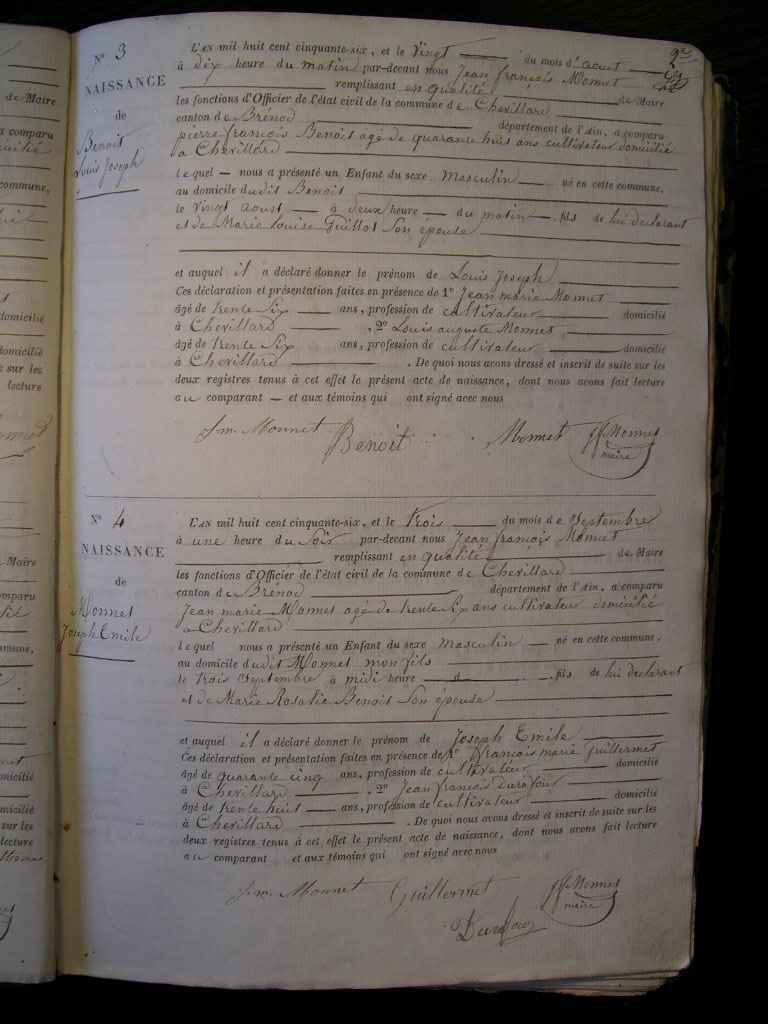 2e
N° 3
NAISSANCE
de
Benoit
Louis Joseph
L'AN mil huit cent cinquante-six, et le Vingt du mois d'aout
à dix heure du matin par-devant nous Jean françois Monnet
remplissant en qualité de Maire
les fonctions d'Officier de l'état civil de la commune de Chevillard
canton de Brénod département de l'Ain, a comparu
pierre françois Benoit agé de quarante huit ans cultivateur domicilié
a Chevillard
lequel nous a présenté un Enfant du sexe Masculin né en cette commune,
au domicile dudit Benoit
le Vingt aout à deux heure du matin, fils de lui declarant
et de Marie Louise Guillot Son épouse
et auquel il a déclaré donner le prénom de Louis Joseph
Ces déclaration et présentation faites en présence de 1° Jean marie Monnet
âgé de trente Six ans, profession de cultivateur domicilié
à Chevillard , 2° Louis auguste Monnet
âgé de trente Six ans, profession de cultivateur domicilié
à Chevillard . De quoi nous avons dressé et inscrit de suite sur les
deux registres tenus à cet effet le présent acte de naissance, dont nous avons fait lecture
au comparant et aux témoins qui ont signé avec nous
Jm. Monnet Benoit Monnet JfMonnet
maire
N° 4
NAISSANCE
de
Monnet
Joseph Emile
L'AN mil huit cent cinquante-six, et le trois du mois de Septembre
à une heure du Soir par-devant nous Jean françois Monnet
remplissant en qualité de Maire
les fonctions d'Officier de l'état civil de la commune de Chevillard
canton de Brénod département de l'Ain, a comparu
Jean marie Monnet agé de trente Six ans cultivateur domicilié
a Chevillard
lequel nous a présenté un Enfant du sexe masculin né en cette commune,
au domicile dudit Monnet mon fils
le trois Septembre à midi heure , fils de lui declarant
et de Marie Rosalie Benoit Son épouse
et auquel il a déclaré donner le prénom de Joseph Emile
Ces déclaration et présentation faites en présence de 1° françois marie Guillermet
âgé de quarante cinq ans, profession de cultivateur domicilié
à Chevillard , 2° Jean françois Durafour
âgé de trente huit ans, profession de cultivateur domicilié
à Chevillard . De quoi nous avons dressé et inscrit de suite sur les
deux registres tenus à cet effet le présent acte de naissance, dont nous avons fait lecture
au comparant et aux témoins qui ont signé avec nous
Jm. Monnet Guillermet JfMonnet
maire
Durafour